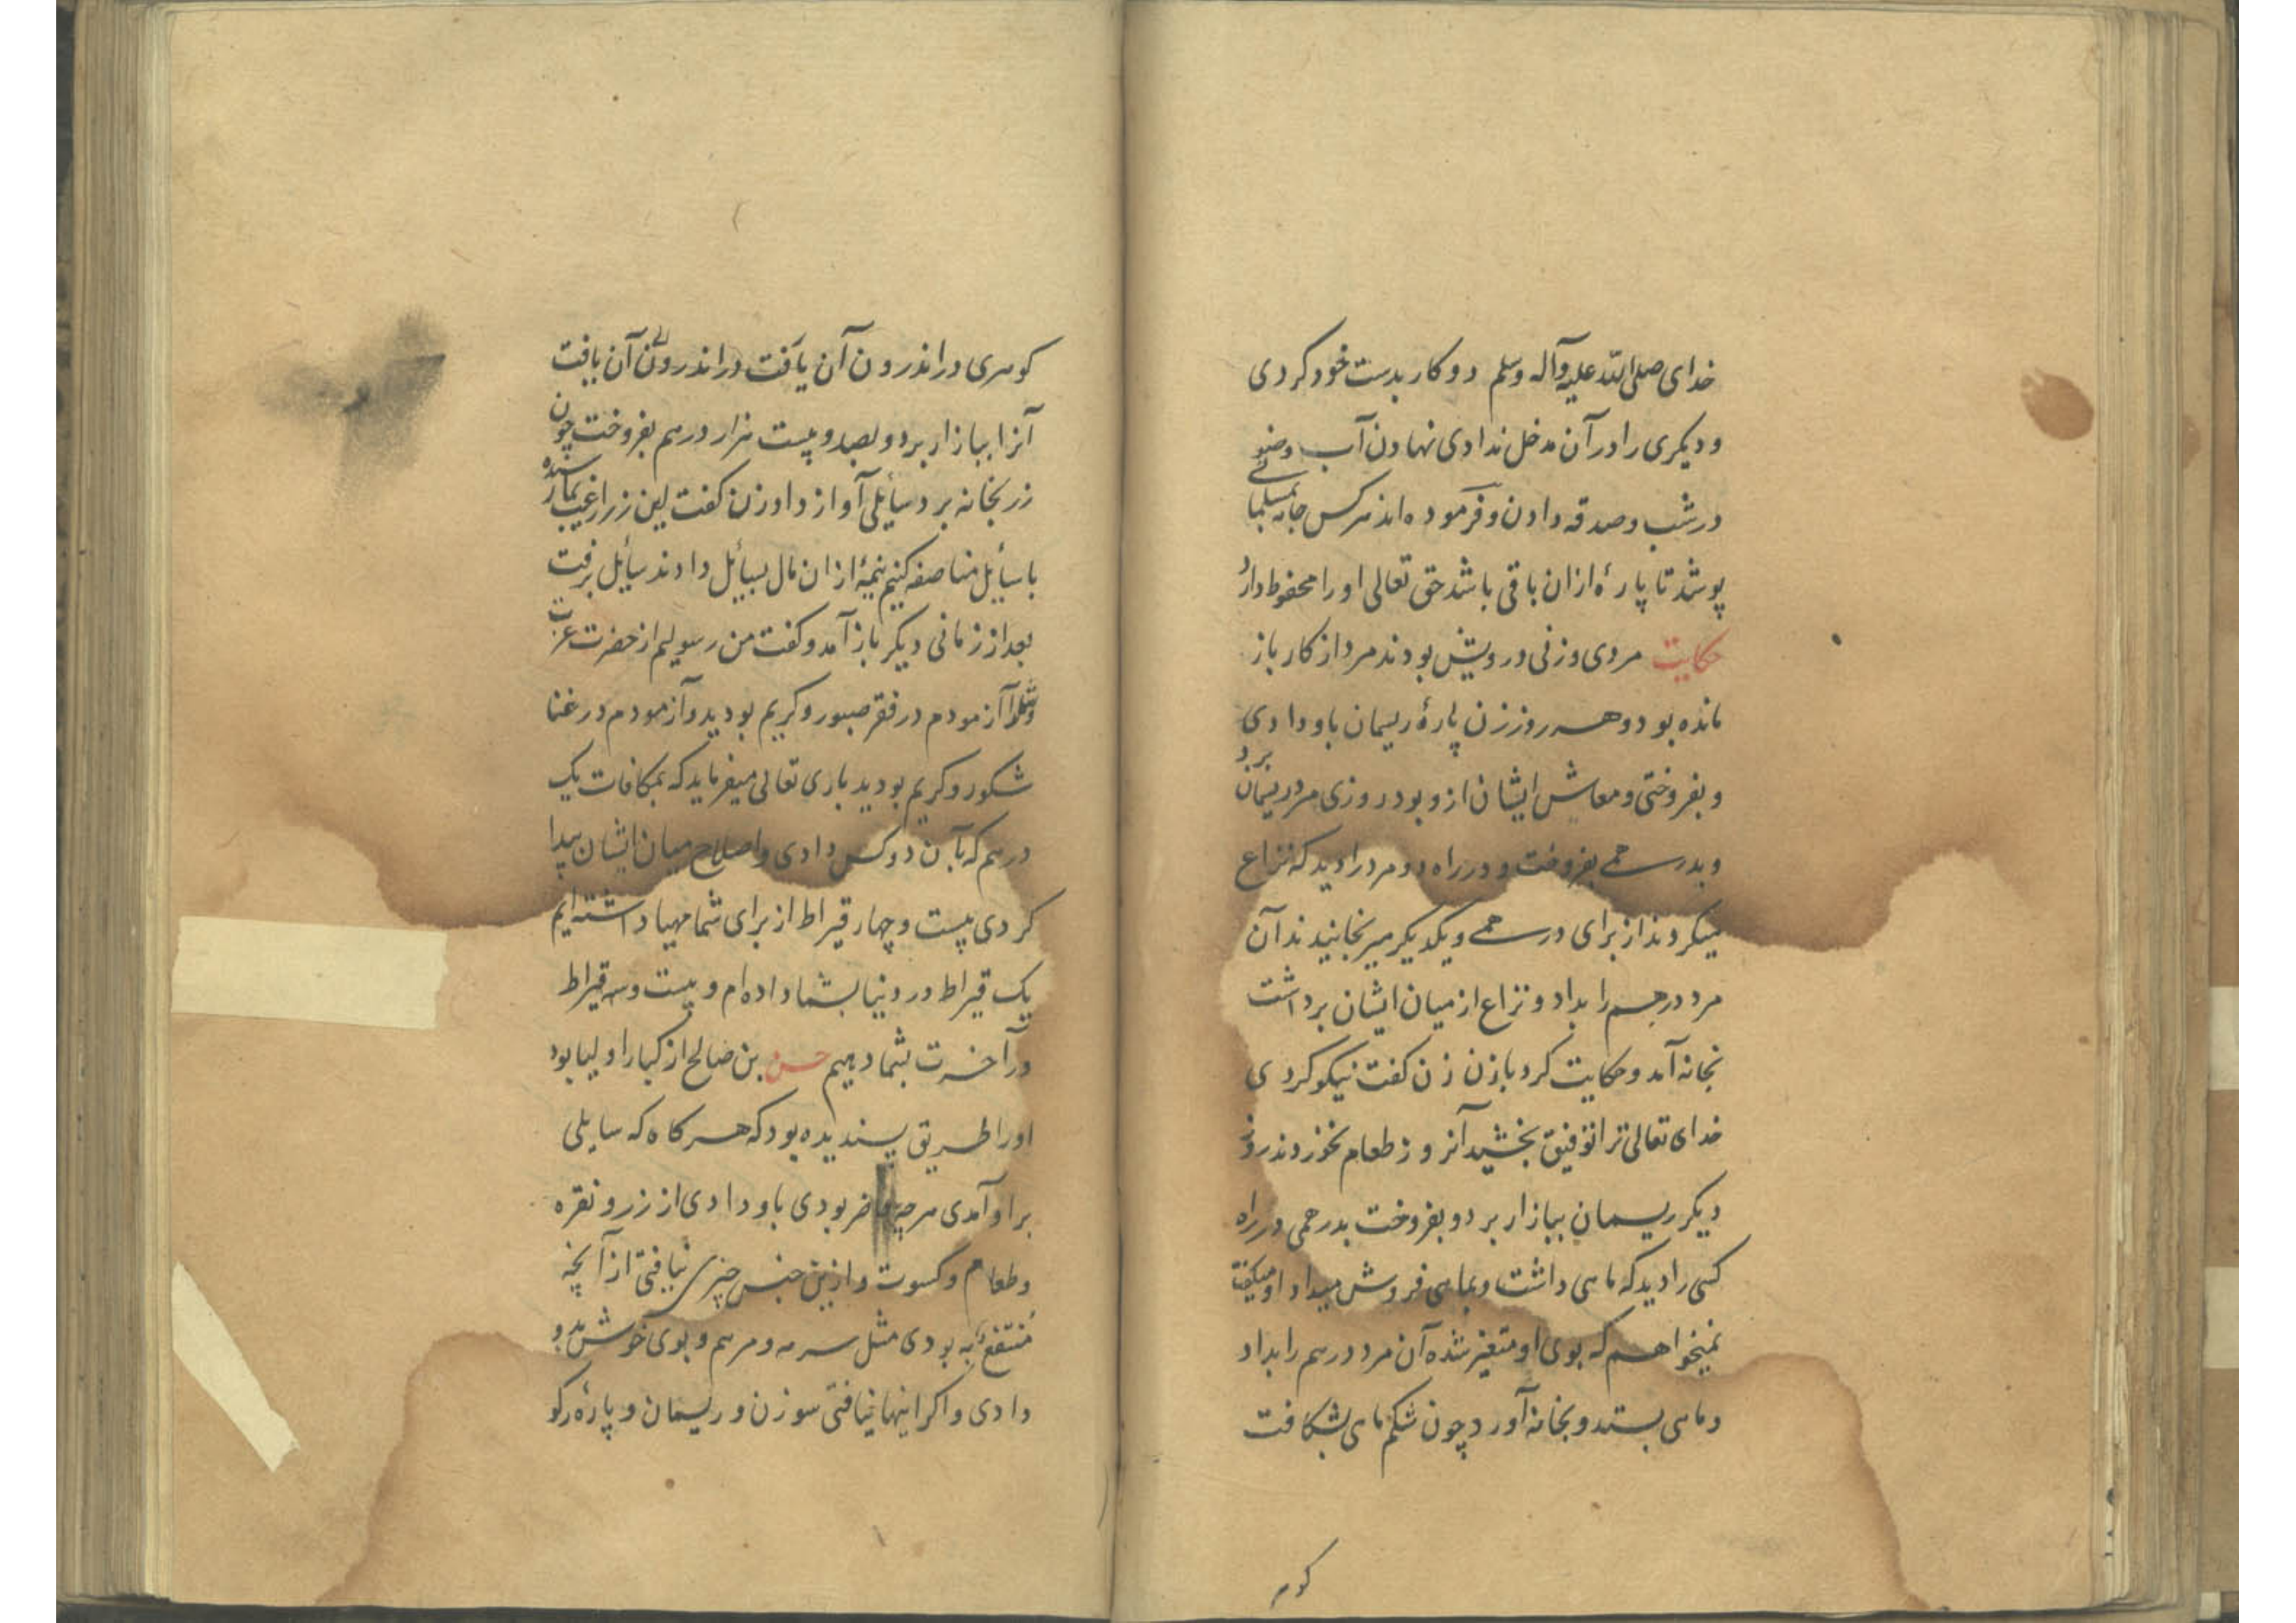 خدای صلی الله علیه وآله وسلم دو کار بدست خود کردی
و دیکری را در آن مدخل ندادی نهادن آب وضو
در شب و صدقه دادن و فرموده اند هرکس جامه بمسلمانی
پوشد تا پارهٔ ازان باقی باشد حق تعالی او را محفوظ دارد
حکایت مردی و زنی درویش بودند مرد از کار باز
مانده بود و هر روز زن پارهٔ ریسمان باو دادی
و بفروختی و معاش ایشان ازو بود روزی مرد ریسمان برد
و بدرهمی بفروخت و در راه دو مرد را دید که نزاع
میکردند از برای درهمی و یکدیکر میرنجانیدند آن
مرد درهم را بداد و نزاع از میان ایشان برداشت
بخانه آمد و حکایت کرد بازن زن کفت نیکو کردی
خدای تعالی ترا توفیق بخشید آنروز طعام نخوردند روز
دیکر ریسمان ببازار برد و بفروخت بدرهمی در راه
کسی را دید که ماهی داشت و بماهی فروش میداد او میکفت
نمیخواهم که بوی او متغیر شده آن مرد درهم را بداد
و ماهی بستد و بخانه آورد چون شکم ماهی بشکافت
کوهر
کوهری در اندرون آن یافت در اندرون آن یافت
آنرا ببازار برد و بصد و بیست هزار درهم بفروخت چون
زر بخانه برد سایلی آواز داد زن کفت این زر از غیب بما رسیده
با سایل مناصفه کنیم نیمهٔ ازان مال بسایل دادند سایل برفت
بعد از زمانی دیکر باز آمد و کفت من رسولیم از حضرت عزت
و شما را آزمودم در فقر صبور و کریم بودید و آزمودم در غنا
شکور و کریم بودید باری تعالی میفرماید که بمکافات یک
درهم که بآن دو کس دادی و اصلاح میان ایشان پیدا
کردی بیست و چهار قیراط از برای شما مهیا داشته ایم
یک قیراط در دنیا بشما داده ام و بیست و سه قیراط
در آخرت بشما دهیم حسن بن صالح از کبار اولیا بود
او را طریق پسندیده بود که هر کاه که سایلی
بر او آمدی هرچه حاضر بودی باو دادی از زر و نقره
و طعام و کسوت و ازین جنس چیزی نیافتی از آنچه
منتفع به بودی مثل سرمه و مرهم و بوی خوش بدو
دادی و اکر اینها نیافتی سوزن و ریسمان و پارهٔ رکو